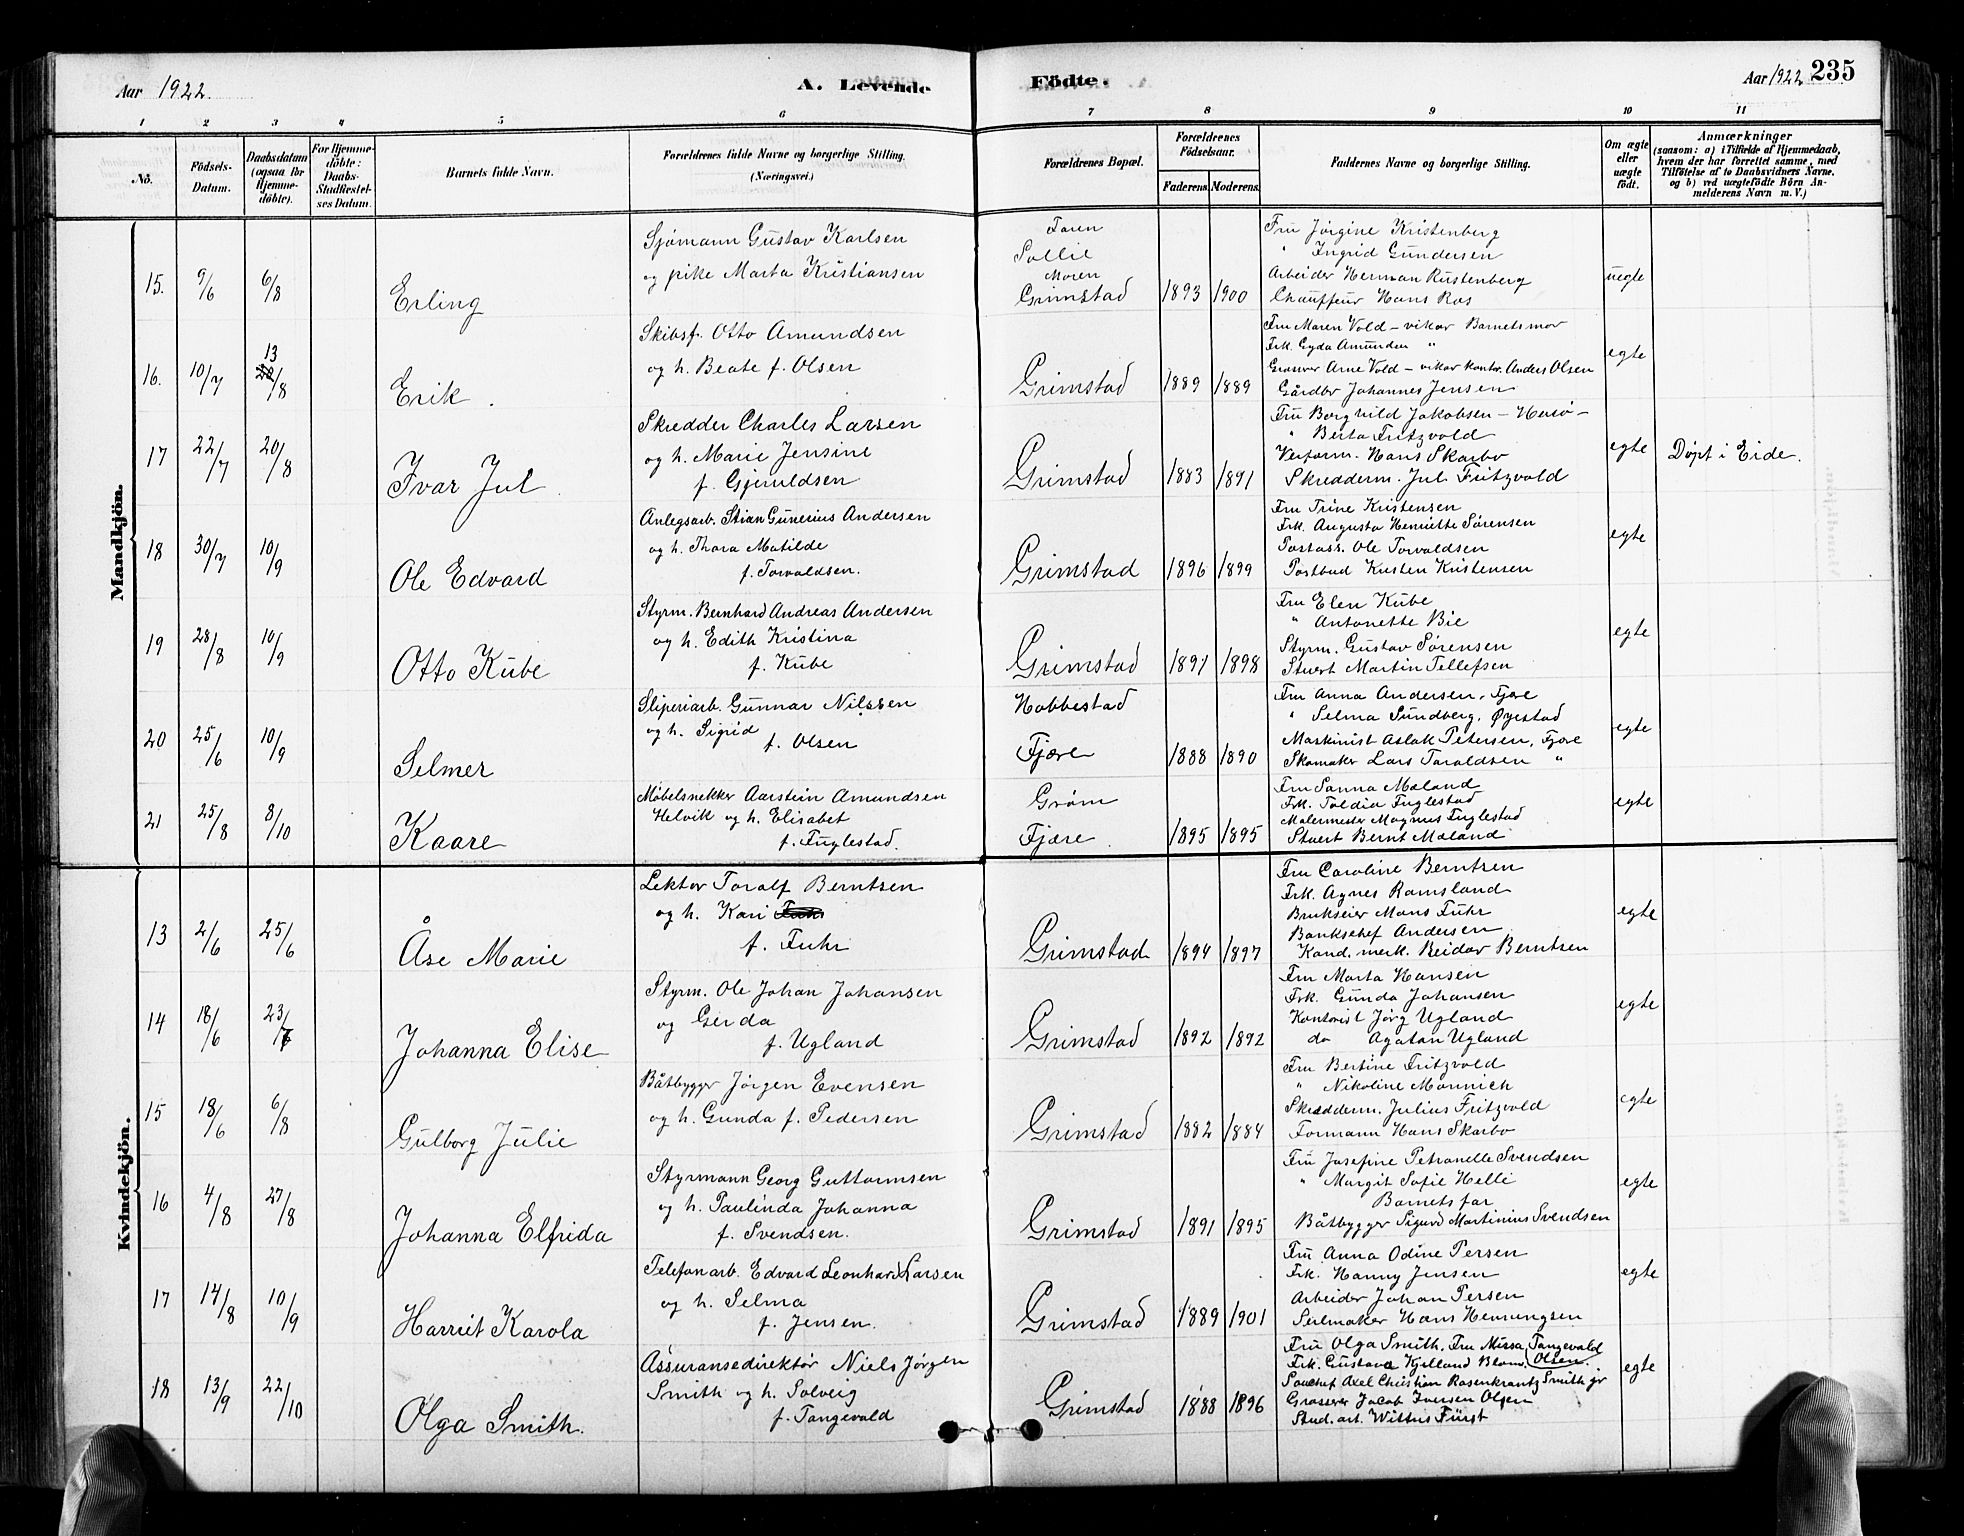 Aar 1922.
A. Levende
Födte.
Aar 1922
235
1 2 3 4 5 6 7 8 9 10 11
No.
Födsels-Datum.
Daabsdatum (ogsaa for Hjemme-döbte).
For Hjemme-döbte: Daabs-Stadfæstel-ses Datum.
Barnets fulde Navn.
Forældrenes fulde Navne og borgerlige Stilling. (Næringsvei.)
Forældrenes Bopæl.
Forældrenes Födselsaar.
Faderens. Moderens.
Faddernes Navne og borgerlige Stilling.
Om ægte eller uægte födt.
Anmærkninger
(saasom: a) i Tilfælde af Hjemmedaab,
hvem der har forrettet samme, med
Tilföielse af to Daabsvidners Navne,
og b) ved uægtefödte Börn An-
melderens Navn m. V.)
Mandkjön.
15. 9/6 6/8 Erling
Sjømann Gustav Karlsen
og pike Marta Kristiansen
Faren
Sollie
Moren
Grimstad 1893 1900
Fru Jørgine Kristenberg
" Ingrid Gundersen
Arbeider Herman Rustenberg
Chauffeur Hans Ros
uegte
16. 10/7 13/8 Erik.
Skibsf. Otto Amundsen
og h. Beate f. Olsen
Grimstad 1889 1889
Fru Maren Vold – vikar Barnetsmor
Frk. Gyda Amundsen "
Grosserer Arne Vold – vikar kontor. Anders Olsen
Gårdbr Johannes Jensen
egte
17 22/7 20/8 Ivar Jul
Skredder Charles Larsen
og h. Marie Jensine
f. Gjeruldsen
Grimstad 1883 1891
Fru Borghild Jakobsen – Hesø –
" Berta Fritzvold
Verform. Hans Skarbo
Skredderm. Jul Fritzvold
egte
Døpt i Eide.
18 30/7 10/9 Ole Edvard
Anlegsarb. Stian Gunerius Andersen
og h. Thora Matilde
f. Torvaldsen.
Grimstad 1896 1899
Fru Trine Kristensen
Frk. Augusta Henriette Sørensen
Postass. Ole Torvaldsen
Postbud Kristen Kristensen
egte
19 28/8 10/9 Otto Kube
Styrm. Bernhard Andreas Andersen
og h. Edith Kristina
f. Kube
Grimstad 1891 1898
Fru Elen Kube
" Antonette Bie
Styrm. Gustav Sørensen
Stuert Martin Tellefsen
egte
20 25/6 10/9 Selmer
Sliperiarb. Gunnar Nilssen
og h. Sigrid
f. Olsen
Habbestad
Fjære 1888 1890
Fru Anna Andersen, Fjære
" Selma Sundberg, Øyestad
Maskinist Aslak Petersen, Fjære
Skomaker Lars Taraldsen "
egte
21 25/8 8/10 Kaare
Møbelsnekker Aarstein Amundsen
Helvik og h. Elisabet
f. Fuglestad.
Grøm
Fjære. 1895 1895
Fru Sanna Mæland
Frk. Toldia Fuglestad
Malermester Magnus Fuglestad
Stuert Bernt Mæland
egte
Kvindekjön.
13 2/6 25/6 Åse Marie
Lektor Toralf Berntsen
og h. Kari
f. Fuhr
Grimstad 1894 1897
Fru Caroline Berntsen
Frk. Agnes Ramsland
Brukseier Mons Fuhr
Bankschef Andersen
Kand. merk. Reidar Berntsen
egte
14 18/6 23/7 Johanna Elise
Styrm. Ole Johan Johansen
og Gerda
f. Ugland
Grimstad 1892 1892
Fru Marta Hansen
Frk. Gunda Johansen
Kontorist Jørg Ugland
do Agaton Ugland
egte
15 18/6 6/8 Gulborg Julie
Båtbygger Jørgen Evensen
og h. Gunda f. Pedersen
Grimstad 1882 1884
Fru Bertine Fritzvold
" Nikoline Monnich
Skredderm. Julius Fritzvold
Formann Hans Skarbo
egte
16 4/8 27/8 Johanna Elfrida
Styrmann Georg Guttormsen
og h. Paulinda Johanna
f. Svendsen.
Grimstad 1891 1895
Fru Josefine Petranelle Svendsen
" Margit Sofie Helle
Barnets far
Båtbygger Sigurd Martinius Svendsen
egte
17 14/8 10/9 Harriet Karola
Telefonarb. Edvard Leonhard Larsen
og h. Selma
f. Jensen.
Grimstad 1889 1901
Fru Anna Odine Persen
Frk. Hanny Jensen
Arbeider Johan Persen
Seilmaker Hans Henningsen
egte
18 13/9 22/10 Olga Smith.
Assuransedirektør Niels Jørgen
Smith og h. Solveig
f. Tangevald
Grimstad 1888 1896
Fru Olga Smith, Fru Missa Tangevald
Frk. Gustava Kjelland Blom, Olsen.
Souschef Axel Christian Rosenkrantz Smith jr
Grosserer Jacob Iversen Olsen
Stud. art. Wittus Fürst
egte